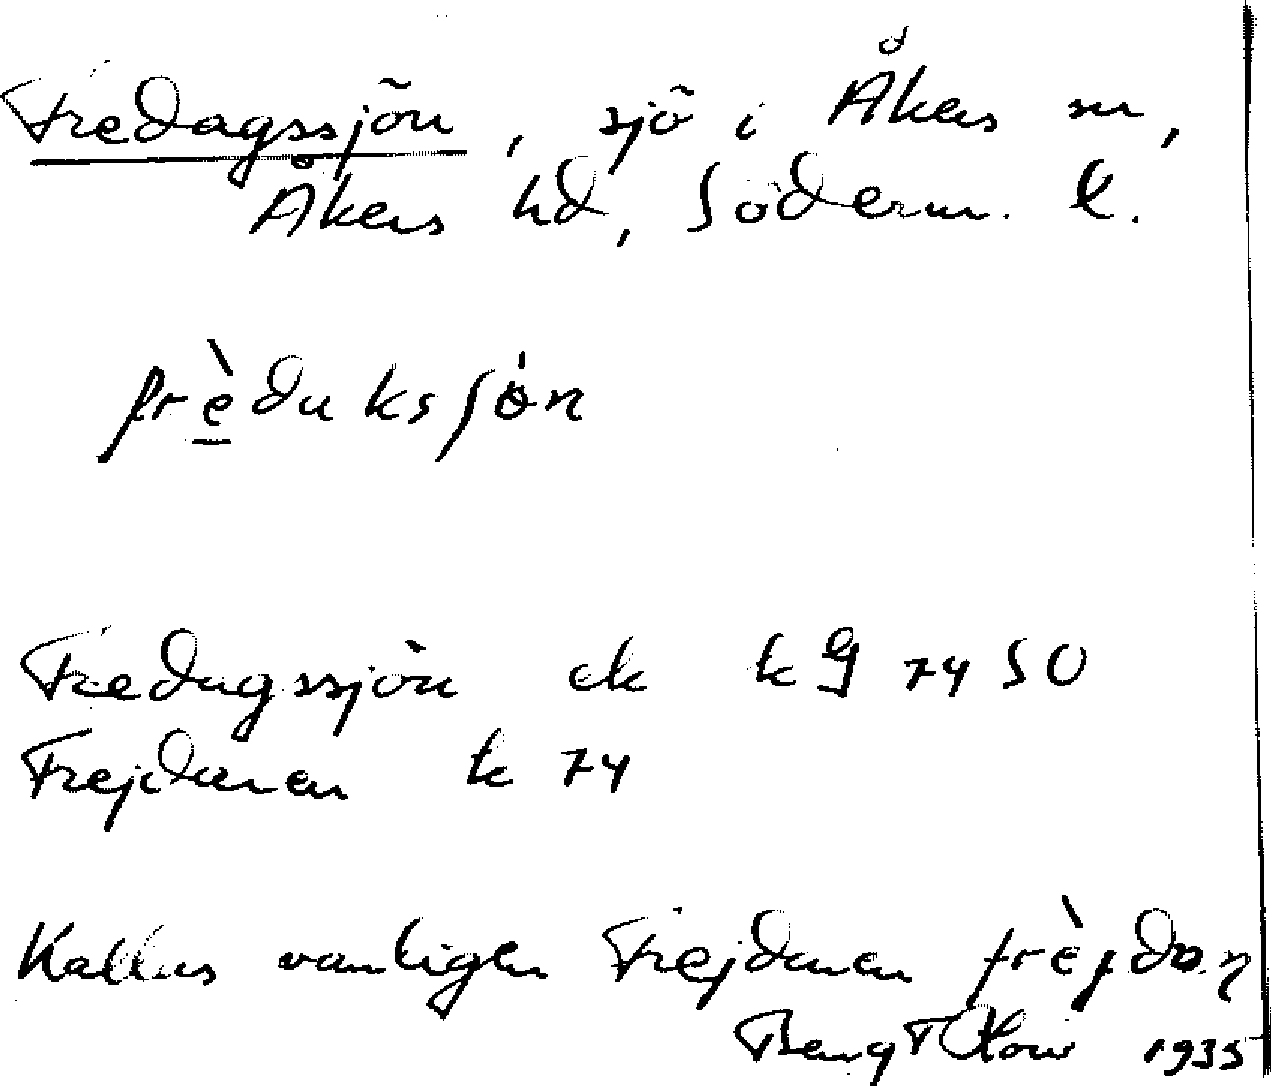 Fredagssjön, sjö i Åkers sn,
Åkers hd, Söderm. l.
frèduksjön
Fredagssjön ek k G 74 SO
Frejdanen k 74
Kallas vanligen Frejdanen frèjdan
Bengt 1935